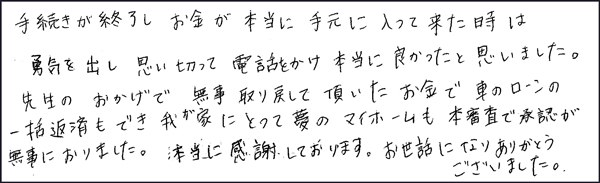 手続きが終了し お金が 本当に 手元に 入って 来た 時は
勇気を出し 思い切って 電話をかけ 本当に 良かったと 思いました。
先生の おかげで 無事 取り戻して 頂いた お金で 車のローンの
一括返済もでき 我が家にとって 夢の マイホームも 本審査で承認が
無事におりました。 本当に 感謝しております。お世話になりありがとう
ございました。